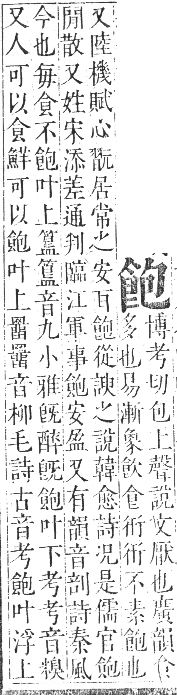 飽
博考切包上聲說文厭也廣韻食
多也易漸象飮食衎衎不素飽也
又陸機賦心翫居常之安耳飽從諛之說韓愈詩況是儒官飽
閒散又姓宋添差通判臨江軍事飽安盈又有韻音剖詩秦風
今也每食不飽叶上簋簋音九小雅旣醉旣飽叶下考考音糗
又人可以食鮮可以飽叶上罶罶音柳毛詩古音考飽叶浮上